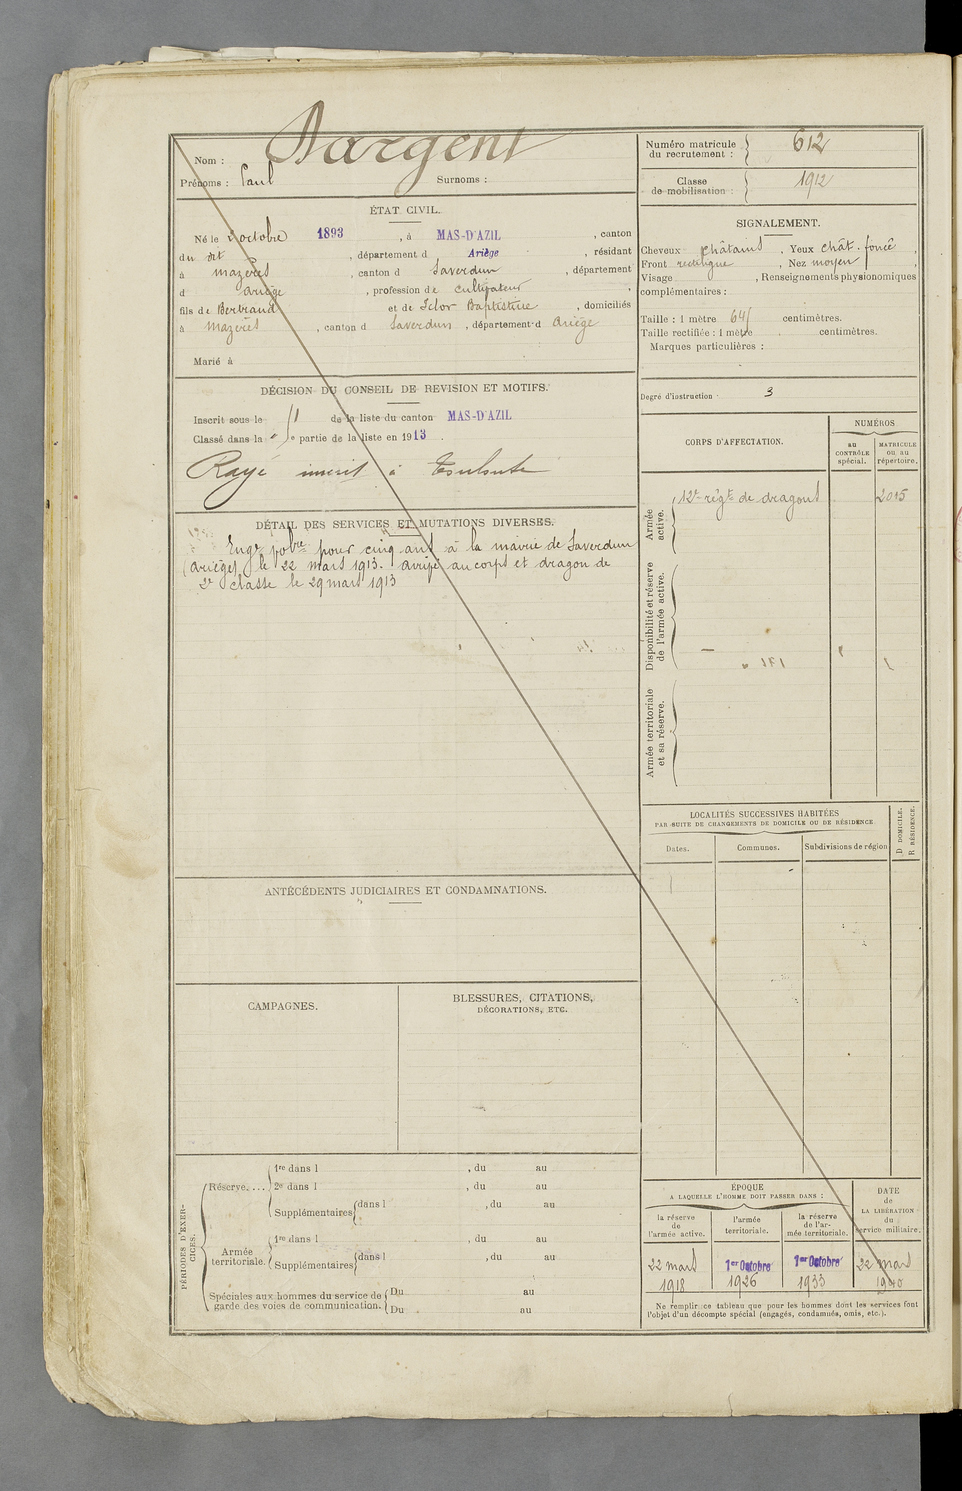 Nom : Dargent
Prénoms : Paul Surnoms :
ÉTAT CIVIL.
Né le octobre 1893, à MAS-D'AZIL, canton
du dit, département d Ariège, résidant
à Mazères, canton d Saverdun, département
d Ariège, profession de cultivateur,
fils de Bertrand et de Baptistine, domiciliés
à Mazères, canton d Saverdun, département d Ariège
Marié à
DÉCISION DU CONSEIL DE REVISION ET MOTIFS.
Inscrit sous le de la liste du canton MAS-D'AZIL
Classé dans la partie de la liste en 1913.
Rayé inscrit à Toulouse
DÉTAIL DES SERVICES ET MUTATIONS DIVERSES.
Engé volre pour cinq ans à la mairie de Saverdun
(Ariège) le 22 mars 1913. Arrivé au corps et dragon de
2e classe le 29 mars 1913
ANTÉCÉDENTS JUDICIAIRES ET CONDAMNATIONS.
CAMPAGNES.
BLESSURES, CITATIONS,
DÉCORATIONS, ETC.
PÉRIODES D'EXERCICES.
Réserve....
1re dans l , du au
2e dans l , du au
Supplémentaires dans l , du au
Armée territoriale.
1re dans l , du au
Supplémentaires dans l , du au
Spéciales aux hommes du service de Du au
garde des voies de communication. Du au
Numéro matricule
du recrutement : 612
Classe
de mobilisation : 1912
SIGNALEMENT.
Cheveux châtains, Yeux chât. foncé,
Front rectiligne, Nez moyen,
Visage , Renseignements physionomiques
complémentaires :
Taille : 1 mètre 64 centimètres.
Taille rectifiée : 1 mètre centimètres.
Marques particulières :
Degré d'instruction 3
CORPS D'AFFECTATION.
NUMÉROS
au
CONTRÔLE
spécial.
MATRICULE
ou au
répertoire.
Armée
active.
12e régt de dragons 2015
Disponibilité et réserve
de l'armée active.
Armée territoriale
et sa réserve.
LOCALITÉS SUCCESSIVES HABITÉES
PAR SUITE DE CHANGEMENTS DE DOMICILE OU DE RÉSIDENCE
Dates.
Communes.
Subdivisions de région
D DOMICILE.
R RÉSIDENCE.
ÉPOQUE
A LAQUELLE L'HOMME DOIT PASSER DANS :
la réserve
de
l'armée active.
l'armée
territoriale.
la réserve
de l'ar-
mée territoriale.
DATE
de
LA LIBÉRATION
du
service militaire.
22 mars
1918
1er Octobre
1926
1er Octobre
1933
22 mars
Ne remplir ce tableau que pour les hommes dont les services font
l'objet d'un décompte spécial (engagés, condamnés, omis, etc.).